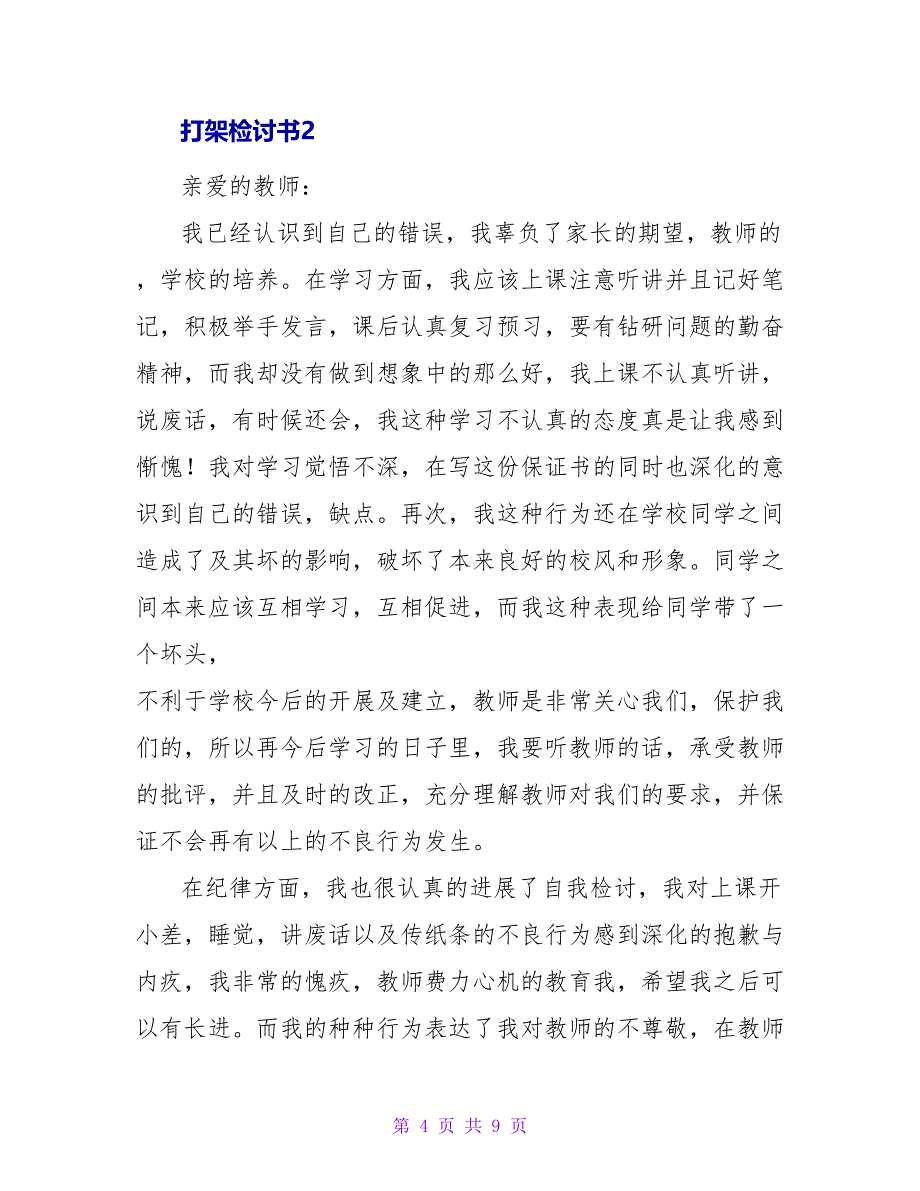 打架检讨书2
亲爱的教师：
我已经认识到自己的错误，我辜负了家长的期望，教师的
，学校的培养。在学习方面，我应该上课注意听讲并且记好笔
记，积极举手发言，课后认真复习预习，要有钻研问题的勤奋
精神，而我却没有做到想象中的那么好，我上课不认真听讲，
说废话，有时候还会，我这种学习不认真的态度真是让我感到
惭愧！我对学习觉悟不深，在写这份保证书的同时也深化的意
识到自己的错误，缺点。再次，我这种行为还在学校同学之间
造成了及其坏的影响，破坏了本来良好的校风和形象。同学之
间本来应该互相学习，互相促进，而我这种表现给同学带了一
个坏头，
不利于学校今后的开展及建立，教师是非常关心我们，保护我
们的，所以再今后学习的日子里，我要听教师的话，承受教师
的批评，并且及时的改正，充分理解教师对我们的要求，并保
证不会再有以上的不良行为发生。
在纪律方面，我也很认真的进展了自我检讨，我对上课开
小差，睡觉，讲废话以及传纸条的不良行为感到深化的抱歉与
内疚，我非常的愧疚，教师费力心机的教育我，希望我之后可
以有长进。而我的种种行为表达了我对教师的不尊敬，在教师
第 4 页 共 9 页